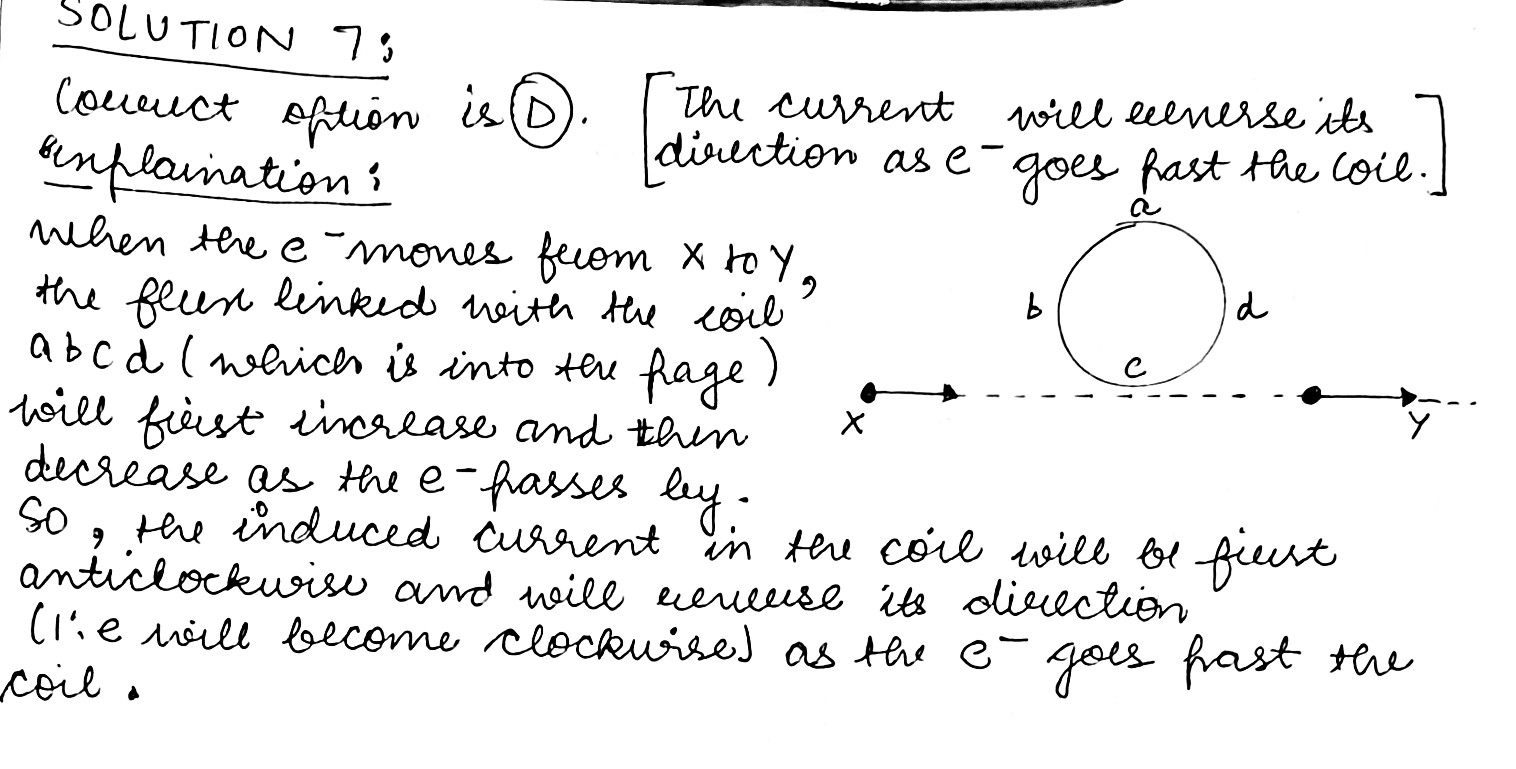 SOLUTION 7:
Correct option is D. [The current will reverse its
direction as e⁻ goes past the coil.]
explaination:
When the e⁻ moves from X to Y,
the flux linked with the coil
abcd (which is into the page)
will first increase and then
decrease as the e⁻ passes by.
So, the induced current in the coil will be first
anticlockwise and will reverse its direction
(i.e will become clockwise) as the e⁻ goes past the
coil.
a
b
d
c
X
Y